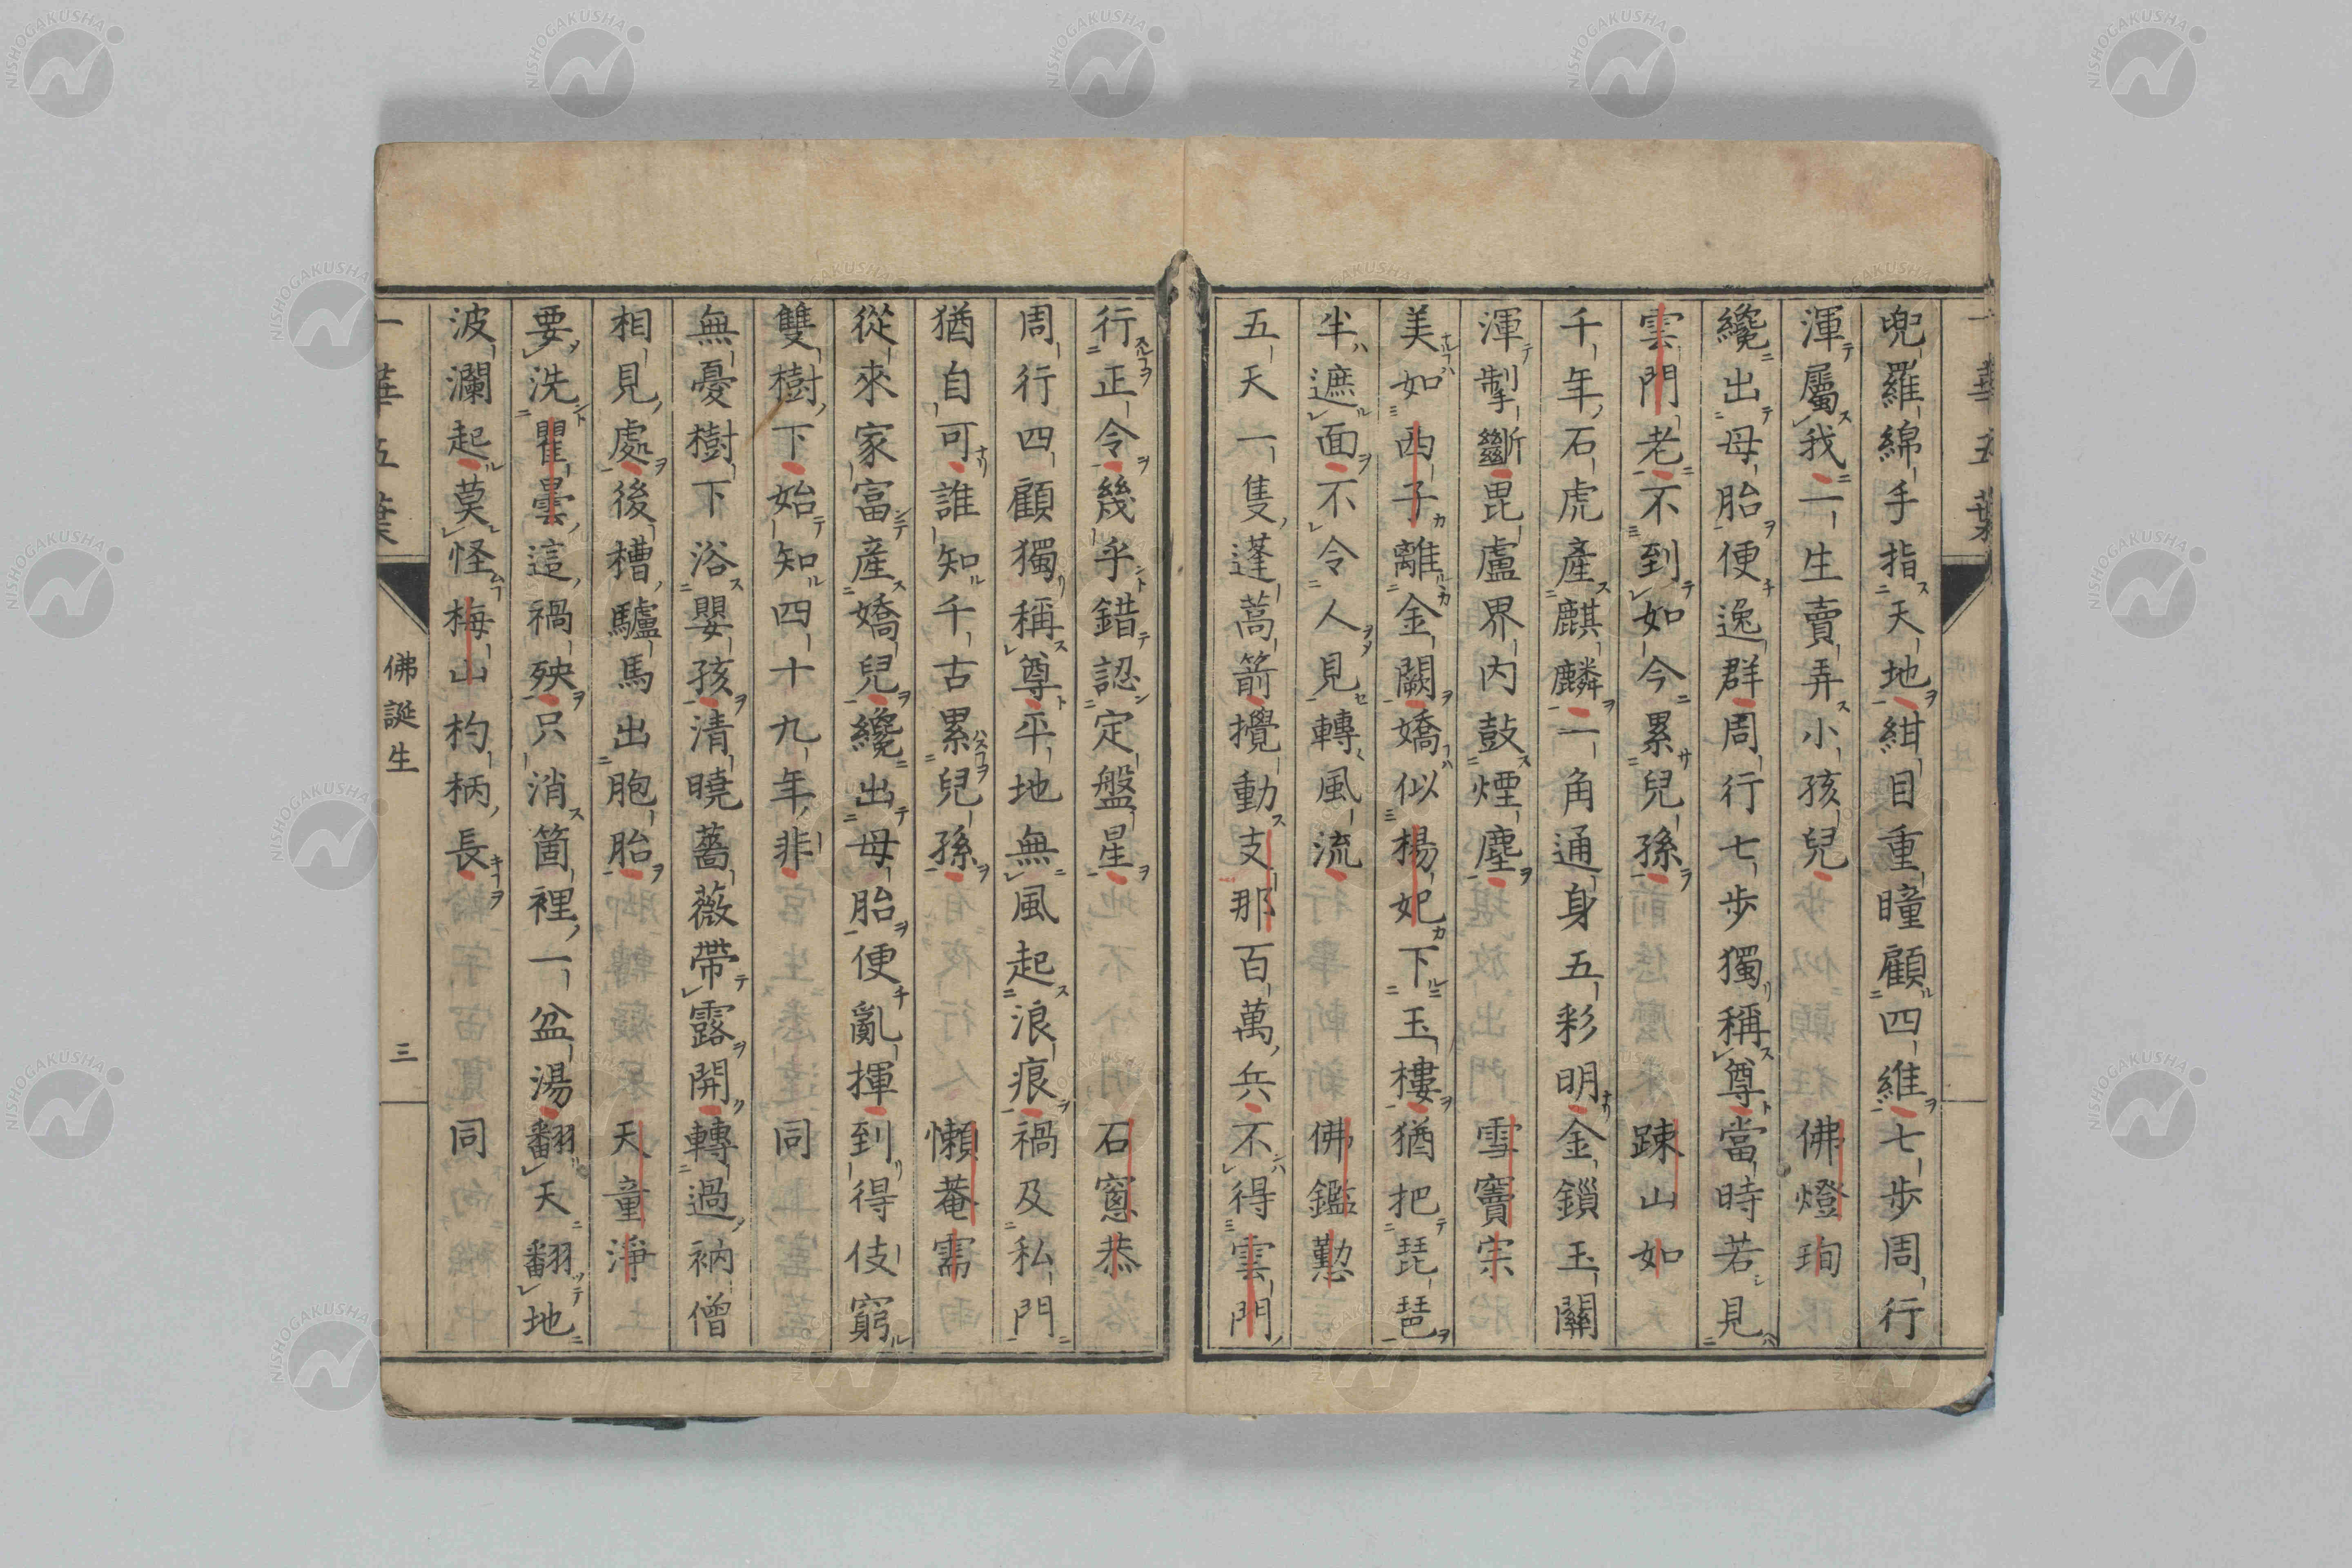 兜羅綿手指天地紺目重瞳顧四維七歩周行
渾屬我一生賣弄小孩兒　佛燈珣
纔出母胎便逸群周行七歩獨稱尊當時若見
雲門老不到如今累兒孫　踈山如
千年石虎產麒麟一角通身五彩明金鎖玉關
渾掣斷毘盧界内鼓煙塵　雪竇宗
美如西子離金闕嬌似楊妃下玉樓猶把琵琶
半遮面不令人見轉風流　佛鑑懃
五天一隻蓬蒿箭攪動支那百萬兵不得雲門
行正令幾乎錯認定盤星　石窓恭
周行四顧獨稱尊平地無風起浪痕禍及私門
猶自可誰知千古累兒孫　懶菴需
從來家富產嬌兒纔出母胎便亂揮到得伎窮
雙樹下始知四十九年非　同
無憂樹下浴嬰孩清曉薔薇帶露開轉過衲僧
相見處後槽驢馬出胞胎　天童淨
要洗瞿曇這禍殃只消箇裡一盆湯翻天翻地
波瀾起莫怪梅山杓柄長　同
一華五葉　佛誕生　三